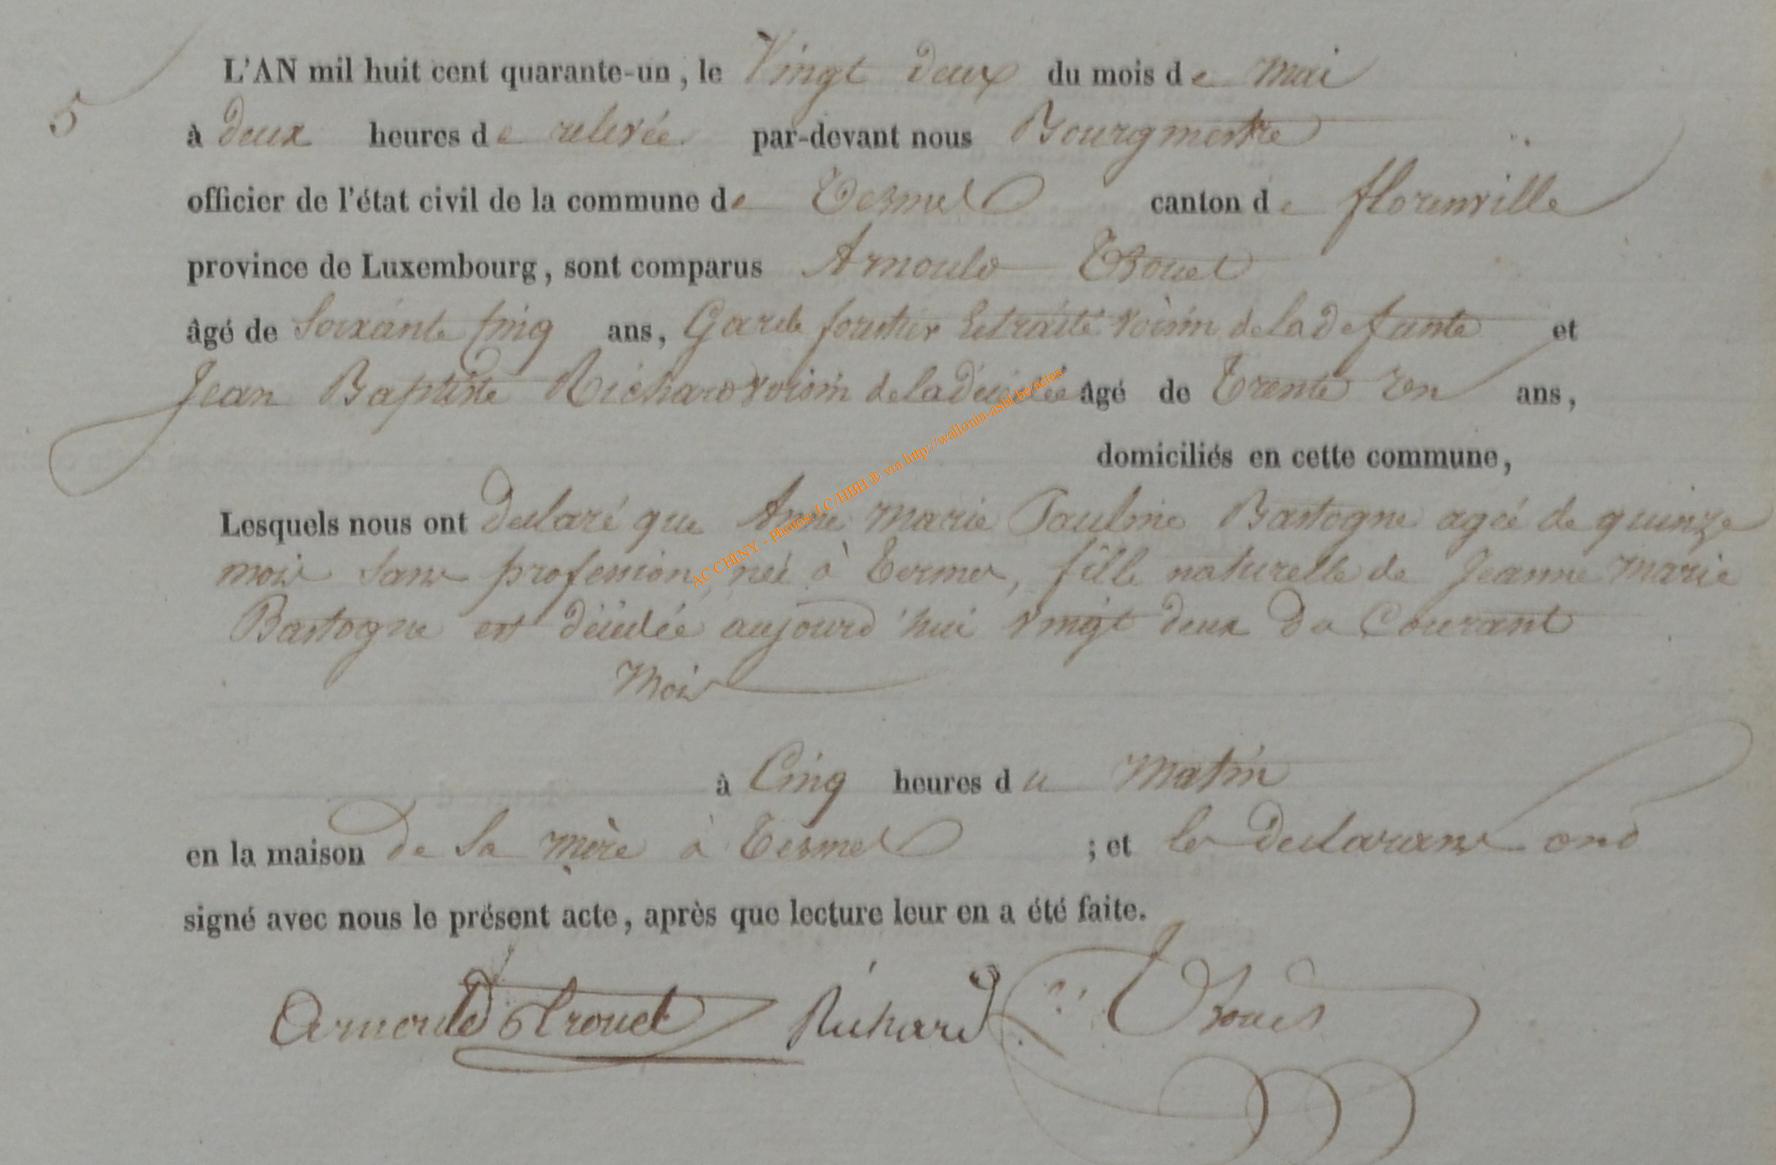 L'AN mil huit cent quarante-un, le Vingt deux du mois de mai
5
à deux heures de relevée par-devant nous Bourgmestre
officier de l'état civil de la commune de Termes canton de florenville
province de Luxembourg, sont comparus Arnould Trouet
âgé de Soixante cinq ans, Garde forestier retraité voisin de la defunte et
Jean Baptiste Richard voisin de la décédée âgé de Trente un ans,
domiciliés en cette commune,
Lesquels nous ont declaré que Anne marie Pauline Bastogne agée de quinze
mois sans profession, née à Termes, fille naturelle de Jeanne marie
Bastogne est décédée aujourd'hui vingt deux du Courant
Mois
à Cinq heures du matin
en la maison de sa mère à Termes ; et les declarans ont
signé avec nous le présent acte, après que lecture leur en a été faite.
Arnould Trouet Richard Trouet
AC CHINY - Photos LC/HBH ® via http://wallonia-asbl.be/actes/